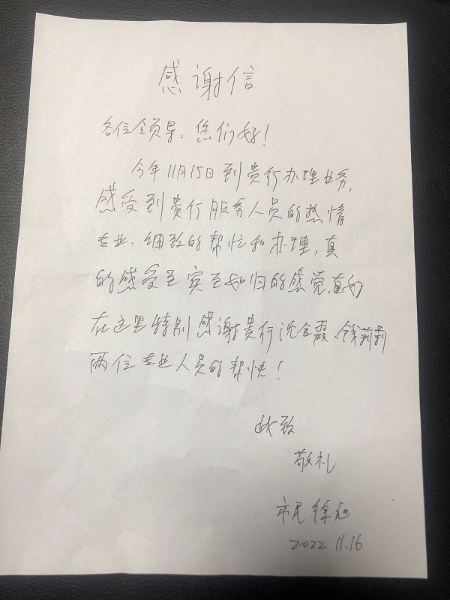 感谢信
各位领导、您们好！
今年11月15日到贵行办理业务，
感受到贵行服务人员的热情
专业、细致的帮忙和办理，真
的感受至宾至如归的感觉，真好
在这里特别感谢贵行沈金霞、钱莉莉
两位专业人员的帮忙！
此致
敬礼
市民 徐
2022 11.16